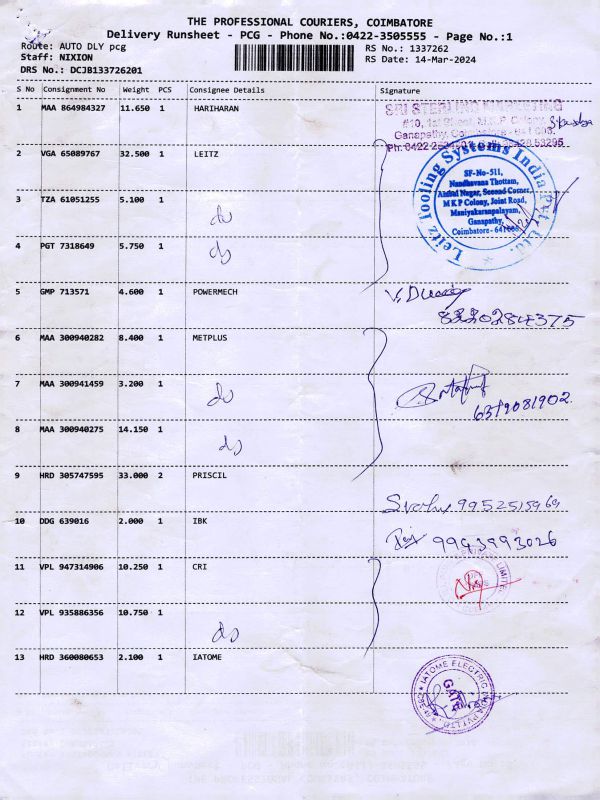 THE PROFESSIONAL COURIERS, COIMBATORE
Delivery Runsheet - PCG - Phone No.:0422-3505555 - Page No.:1
Route: AUTO DLY pcg RS No.: 1337262
Staff: NIXION RS Date: 14-Mar-2024
DRS No.: DCJB133726201
S No Consignment No Weight PCS Consignee Details Signature
1 MAA 864984327 11.650 1 HARIHARAN
SRI STERLING MARKETING
#10, 1st Street, M.K.P. Colony,
Ganapathy, Coimbatore - 641 006.
2 VGA 65089767 32.500 1 LEITZ
Leitz Tooling Systems India Pvt. Ltd.
SF-No-511,
Nandhavana Thottam,
Aishal Nagar, Second Corner,
M K P Colony, Joint Road,
Maniyakaranpalayam,
Ganapathy,
Coimbatore - 641006
3 TZA 61051255 5.100 1 do
4 PGT 7318649 5.750 1 do
5 GMP 713571 4.600 1 POWERMECH
8220284375
6 MAA 300940282 8.400 1 METPLUS
7 MAA 300941459 3.200 1 do
6379081902
8 MAA 300940275 14.150 1 do
9 HRD 305747595 33.000 2 PRISCIL
9952515969
10 DDG 639016 2.000 1 IBK
9993993026
11 VPL 947314906 10.250 1 CRI
12 VPL 935886356 10.750 1 do
13 HRD 360080653 2.100 1 IATOME
IATOME ELECTRIC INDIA PVT LTD
GATE